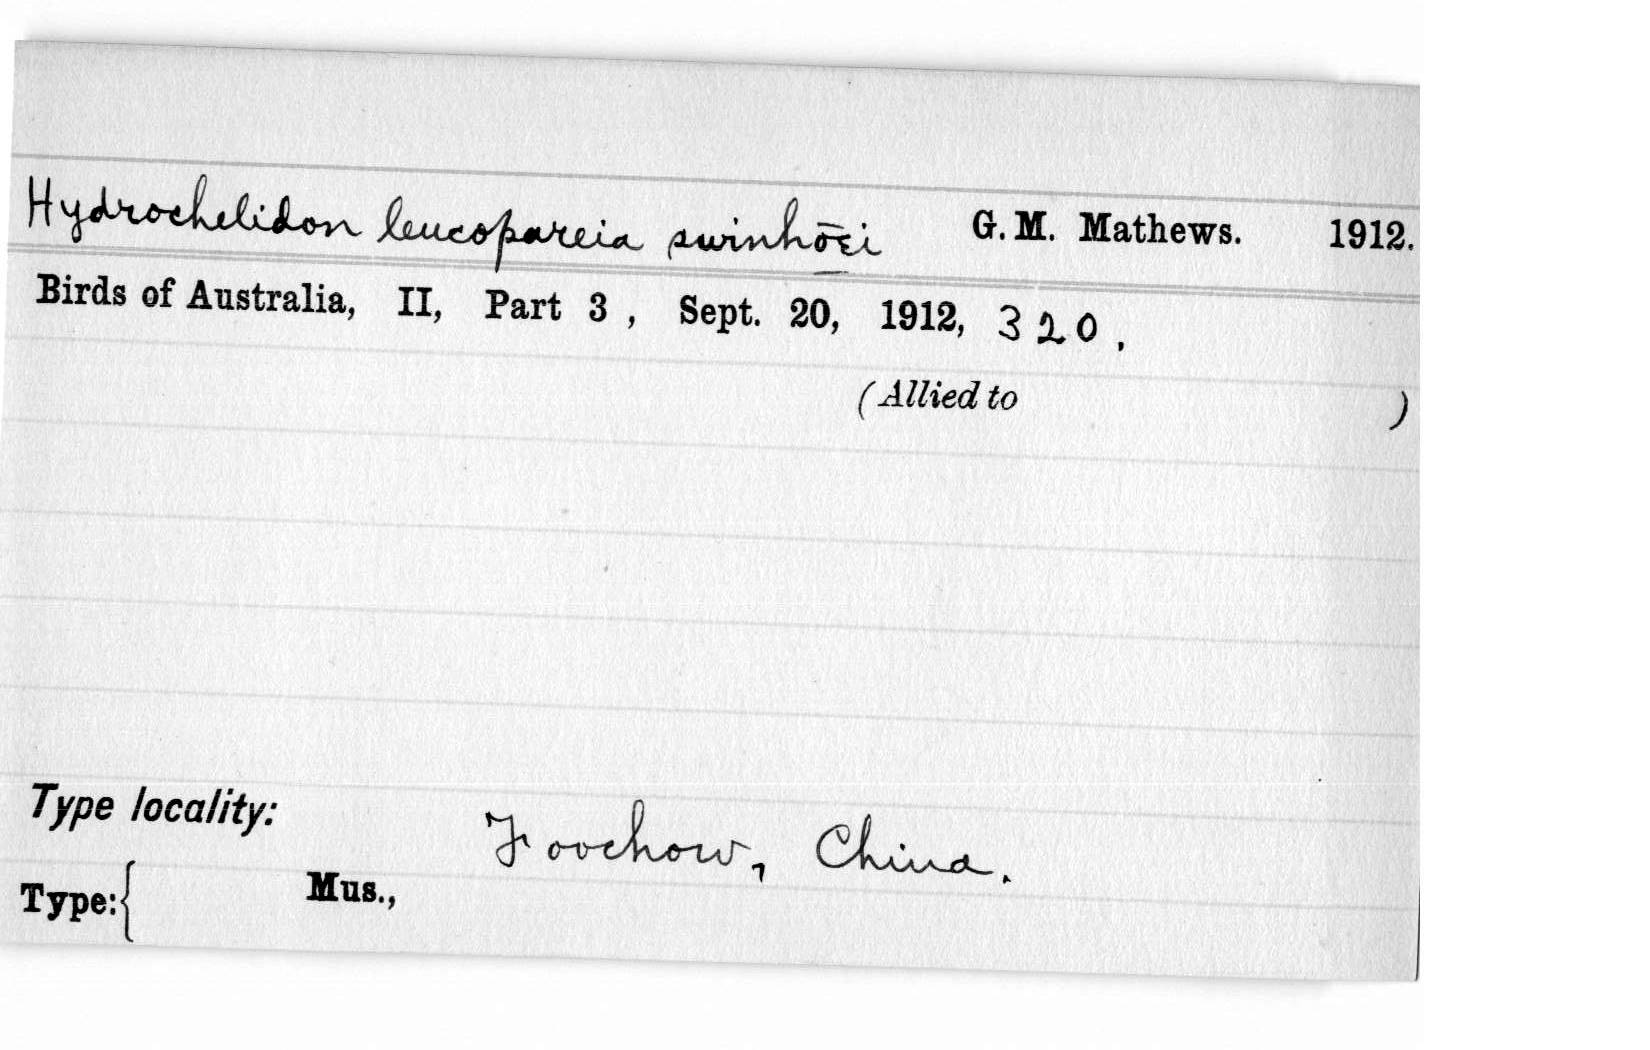 Hydrochelidon leucopareia swinhōei G. M. Mathews. 1912.
Birds of Australia, II, Part 3 , Sept. 20, 1912, 320 .
(Allied to )
Type locality: Foochow, China.
Type:{ Mus.,